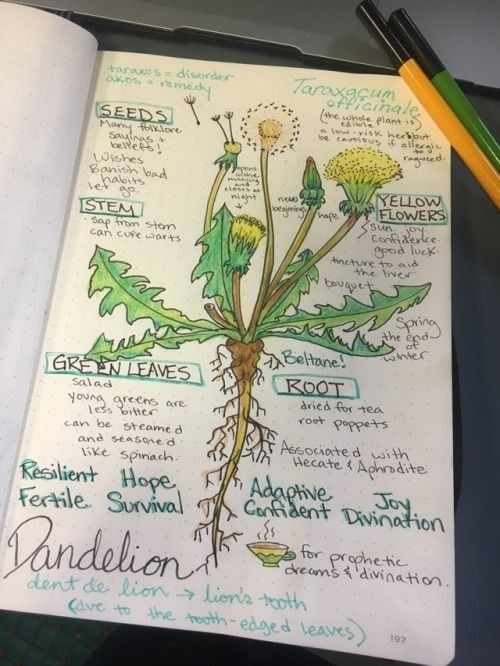 taraxos = disorder
akos = remedy
Taraxacum
officinale
(the whole plant is
edible!
a low-risk herb but
be cautious if allergic
to
ragweed.
SEEDS
Many folklore
sayings +
beliefs!
Wishes
Banish bad
habits.
let go.
opens
in the
morning
and
closes at
night
new
beginnings
hope
YELLOW
FLOWERS
Sun. joy.
Confidence.
good luck.
tincture to aid
the liver
bouquet
STEM
• sap from stem
can cure warts
Spring
the end
of
winter
Beltane!
GREEN LEAVES
salad
young greens are
less bitter
can be steamed
and seasoned
like spinach.
ROOT
dried for tea
root poppets
Associated with
Hecate & Aphrodite
Resilient Hope
Fertile Survival
Adaptive
Confident
Joy
Divination
Dandelion
for prophetic
dreams & divination.
dent de lion → lion's tooth
(due to the tooth-edged leaves)
197